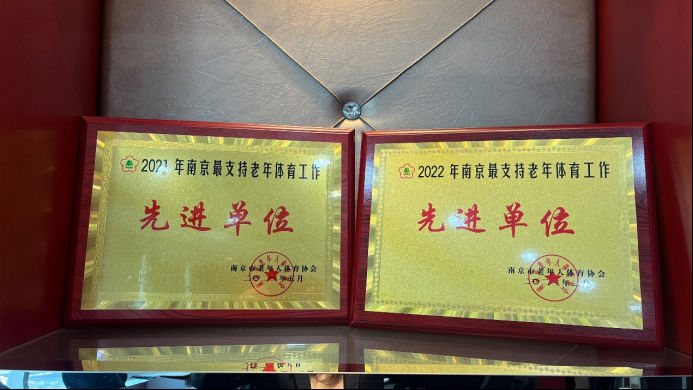 2021 年南京最支持老年体育工作
先进单位
南京市老年人体育协会
2022 年南京最支持老年体育工作
先进单位
南京市老年人体育协会